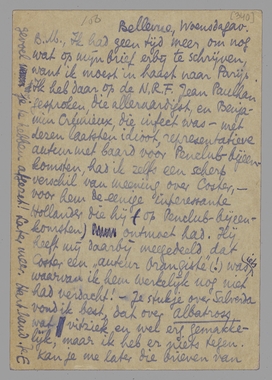 158
[340]
Bellevue, Woensdagav.
B.M., Ik had geen tijd meer, om nog
wat op mijn brief erbij te schrijven,
want ik moest in haast naar Parijs.
Ik heb daar op de N.R.F. Jean Paulhan
gesproken, die alleraardigst, en Benja-
min Crémieux, die infect was – met
dezen laatsten idioot, representatieve
auteur met baard voor Penclub-bijeen-
komsten, had ik zelf een scherp
verschil van meening over Coster, –
voor hem de eenige "interessante
Hollander" die hij (op Penclub-bijeen-
komsten) ontmoet had. Hij
heeft mij daarbij meegedeeld dat
Coster een "auteur Orangiste" (!) was,
waarvan ik hem werkelijk nog niet
had verdacht! – Je stukje over Salvordo
vond ik best, dat over Albatross
wat vitziek, en wel erg gemakke-
lijk, maar ik heb er niets tegen.
Kan je me later die brieven van
gevoel je te hebben
meer. Hartl. hand. je E